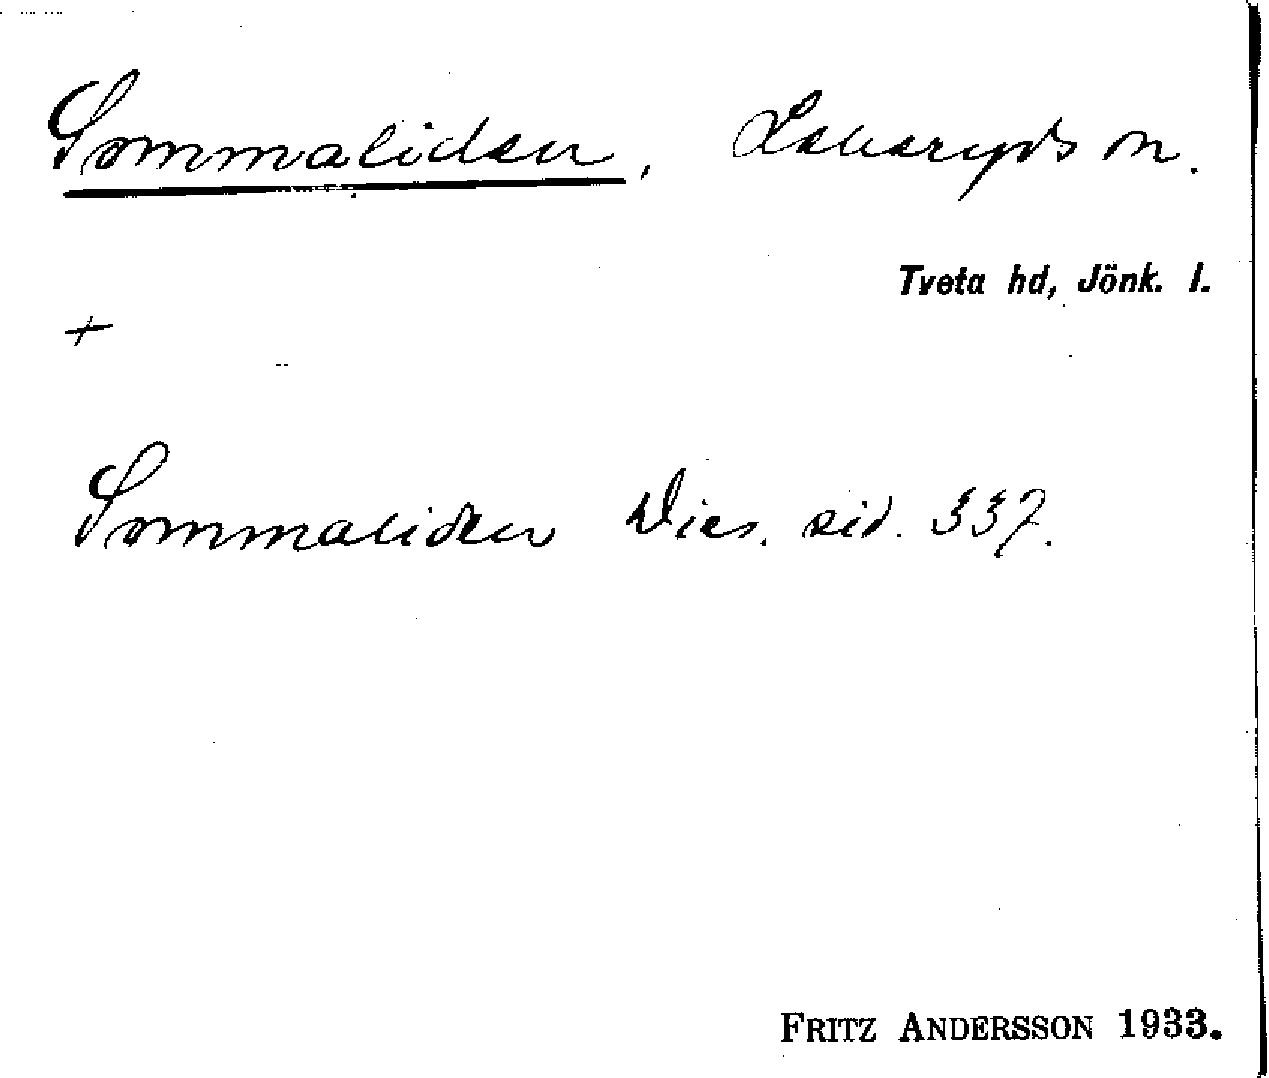 Sommaliden, Lekeryds sn.
Tveta hd, Jönk. l.
+
Sommaliden Wies. sid. 337.
FRITZ ANDERSSON 1933.